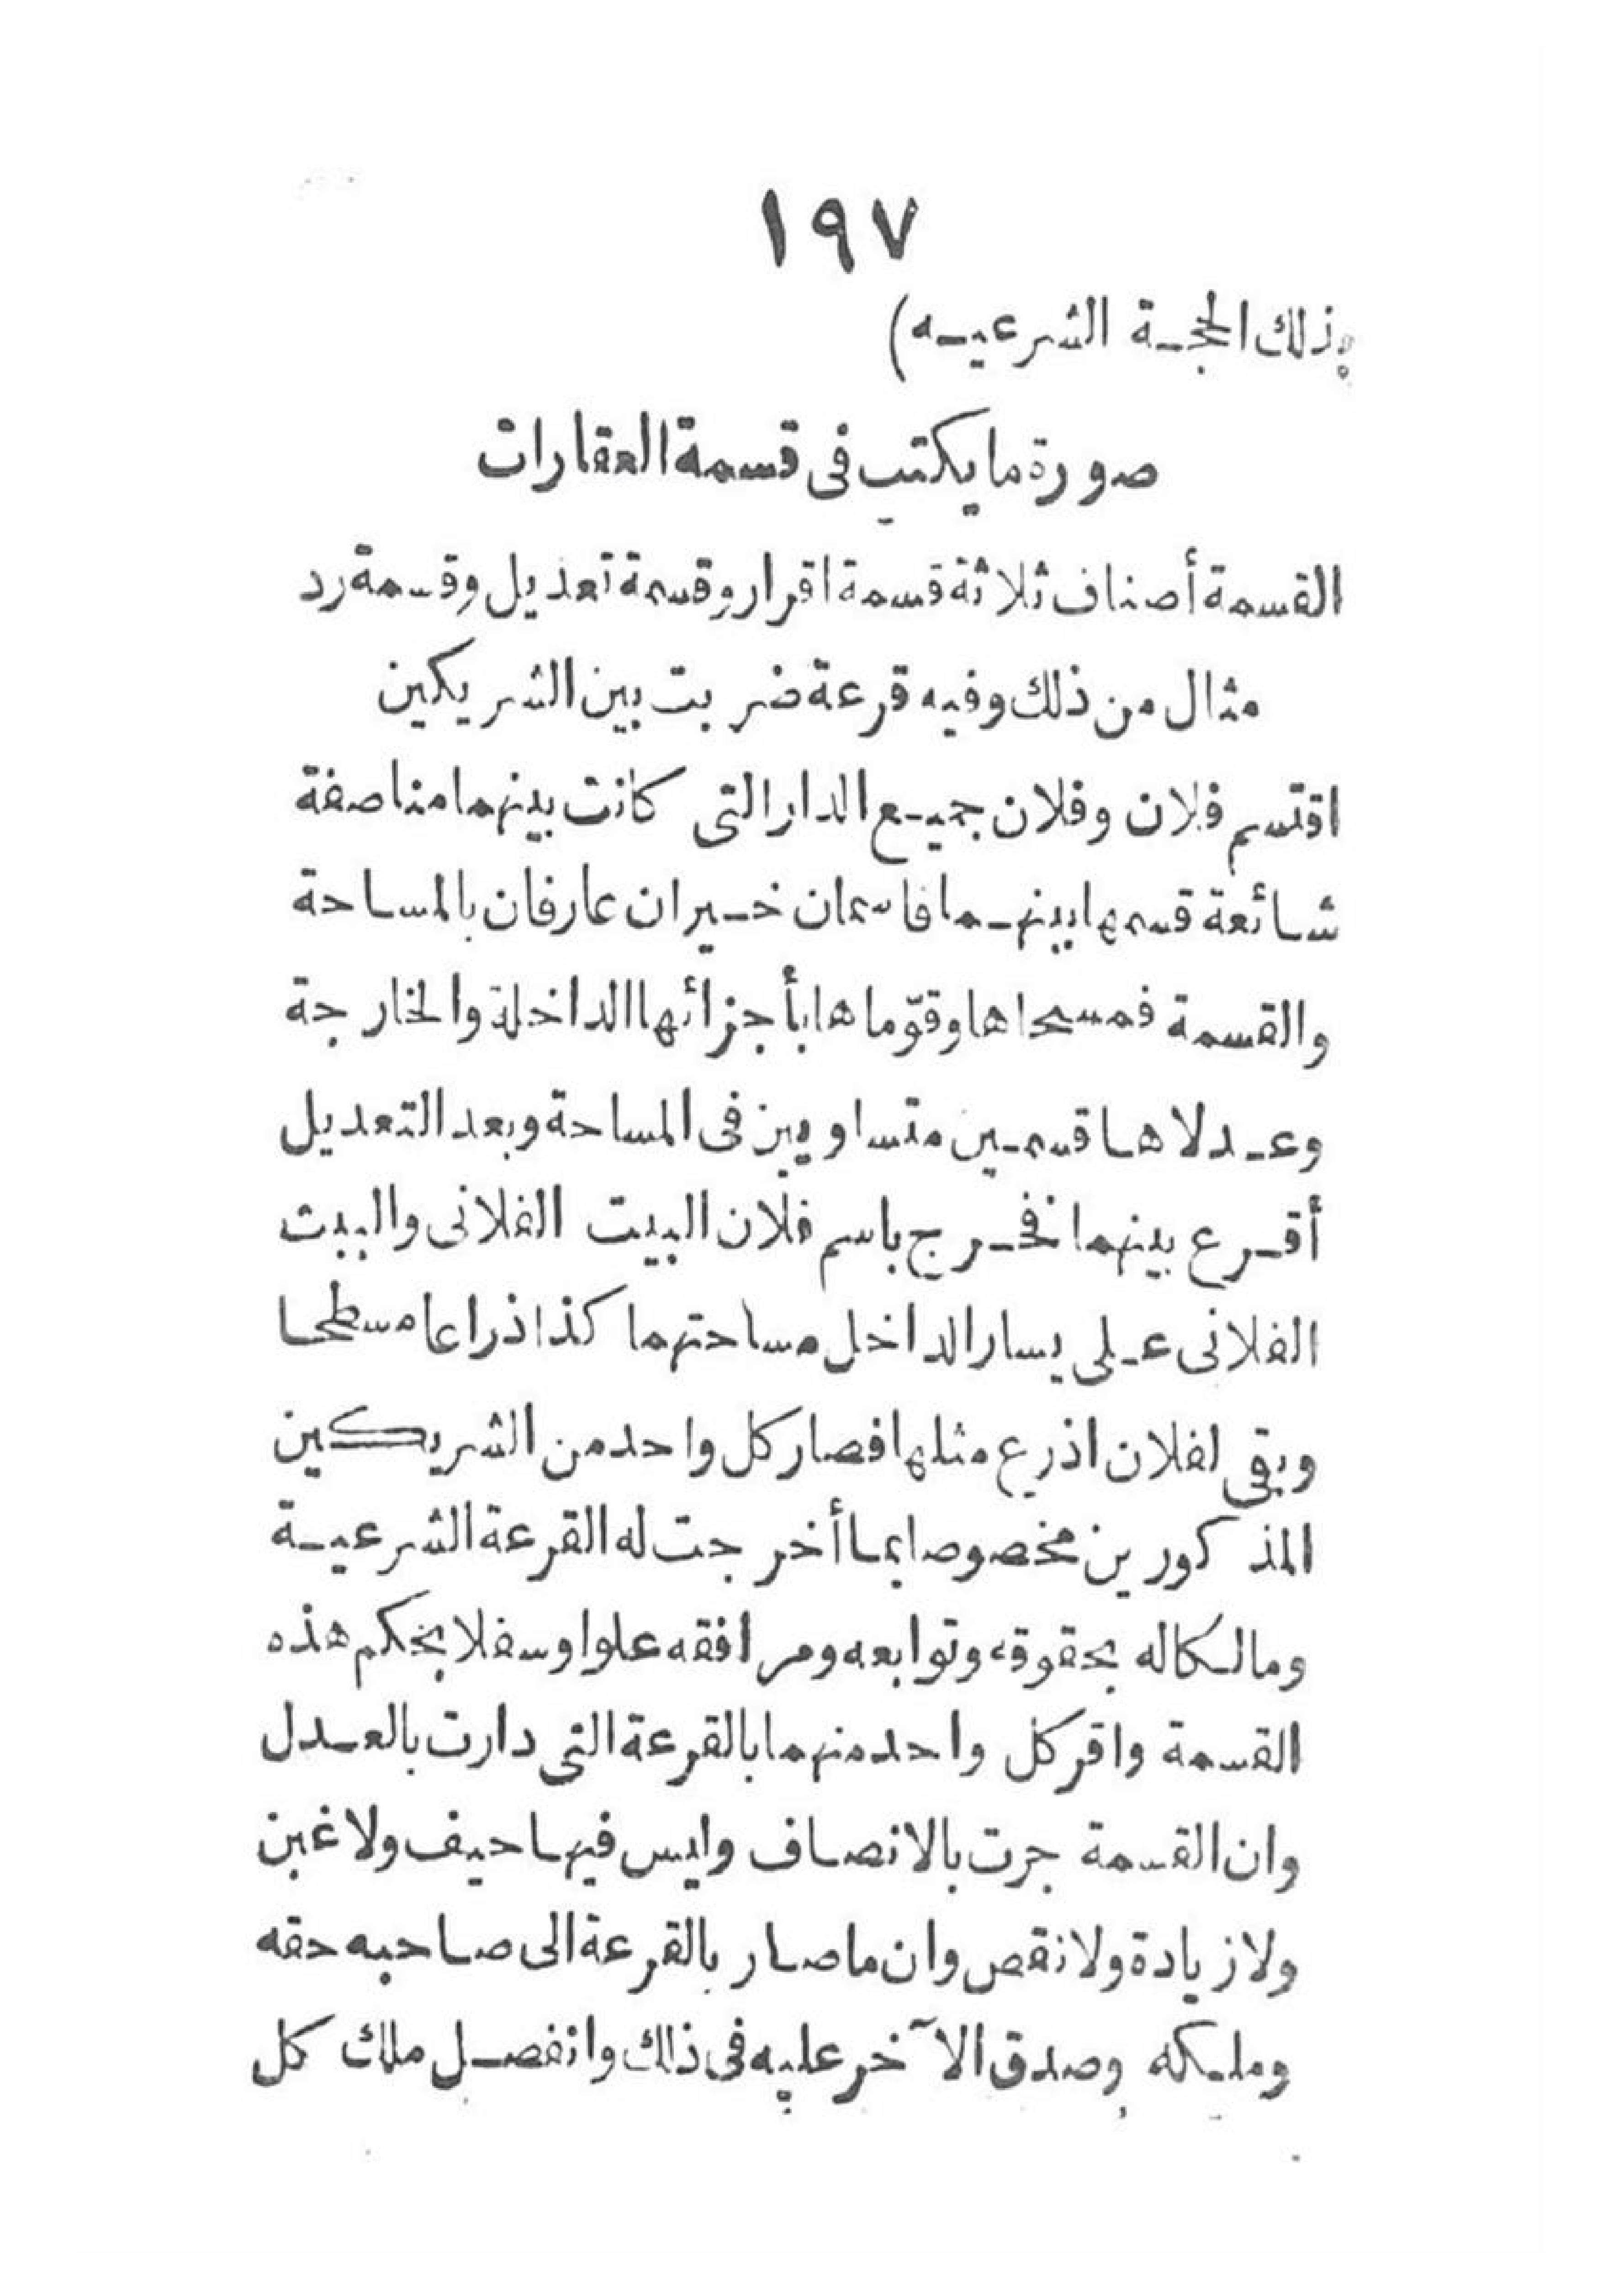 ١٩٧
بذلك الحجة الشرعيه)
صورة ما يكتب فى قسمة العقارات
القسمة أصناف ثلاثة قسمة اقرار وقسمة تعديل وقسمة رد
مثال من ذلك وفيه قرعة ضربت بين الشريكين
اقتسم فلان وفلان جميع الدار التى كانت بينهما مناصفة
شائعة قسمها بينهما قاسمان خبيران عارفان بالمساحة
والقسمة فمسحاها وقوّماها بأجزائها الداخلة والخارجة
وعدلاها قسمين متساويين فى المساحة وبعد التعديل
أقرع بينهما فخرج باسم فلان البيت الفلانى والبيت
الفلانى على يسار الداخل مساحتهما كذا ذراعا مسطحا
وبقى لفلان اذرع مثلها فصار كل واحد من الشريكين
المذكورين مخصوصا بما أخرجت له القرعة الشرعية
ومالكا له بحقوقه وتوابعه ومرافقه علوا وسفلا بحكم هذه
القسمة واقر كل واحد منهما بالقرعة التى دارت بالعدل
وان القسمة جرت بالانصاف وليس فيها حيف ولا غبن
ولا زيادة ولا نقص وان ما صار بالقرعة الى صاحبه حقه
وملكه وصدق الآخر عليه فى ذلك وانفصل ملك كل